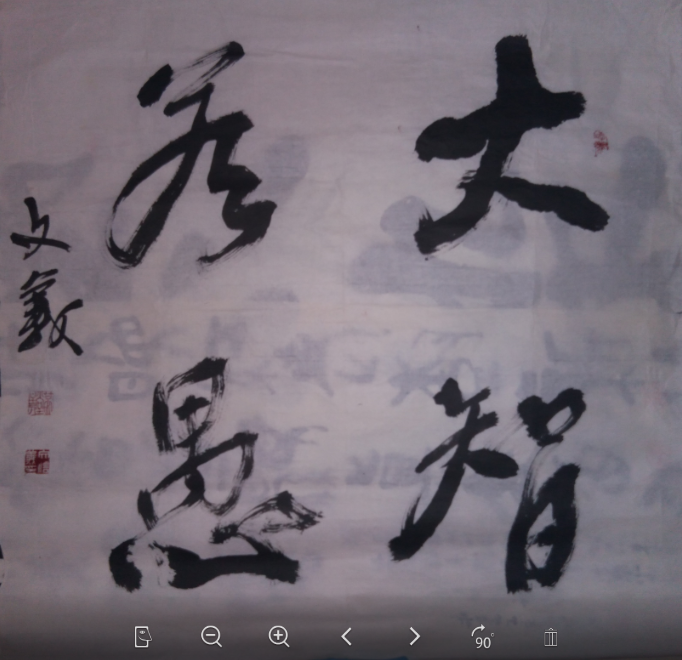 大智
若愚
文
90°